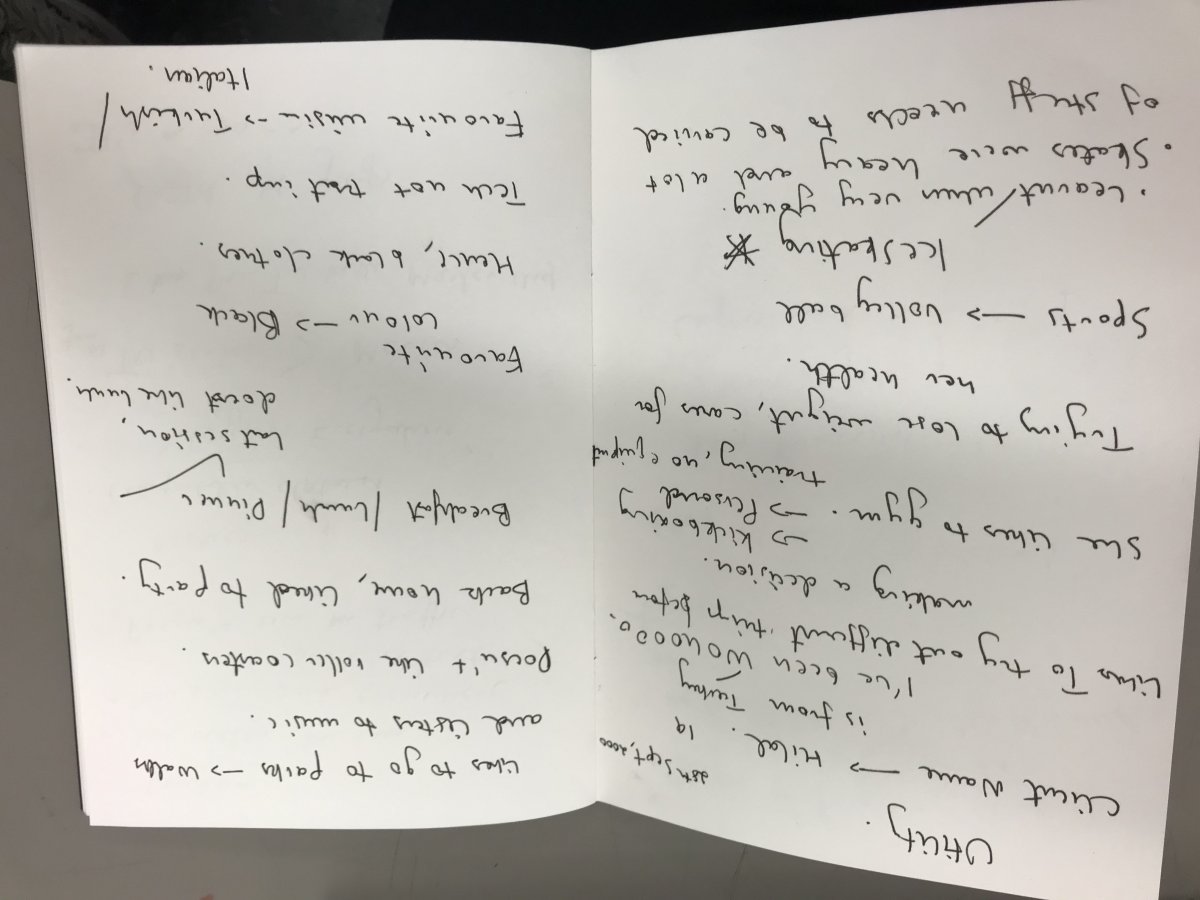 Utility.
Client Name → Hilal. 19 28th Sept, 2000
is from Turkey
I've been
Likes To try out different things before
making a decision.
→ kickboxing
She likes to gym. → Personal
training, no equipment
Trying to lose weight, cares for
her health.
Sports → Volley ball
Ice skating *
. Learnt when very young.
. Skates were heavy and a lot
of stuff needs to be carried
Likes to go to parks → walks
and listens to music.
Doesn't like roller coasters.
Back home, liked to party.
Breakfast / Lunch / Dinner
last session,
doesnt like lunch.
Favourite
colour → Black
Hence, black clothes.
Tech not that imp.
Favourite music → Turkish/
Italian.